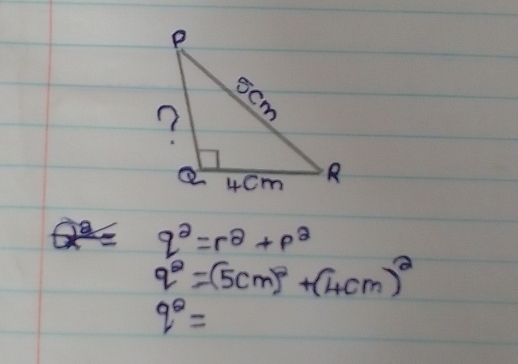 P
5cm
?
Q 4cm R
Q² = q² = r² + p²
q² = (5cm)² + (4cm)²
q² =